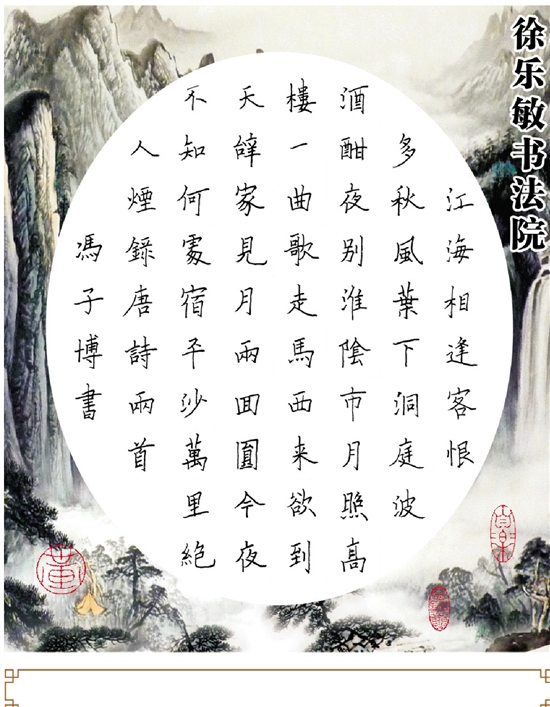 徐乐敏书法院
江海相逢客恨
多秋風葉下洞庭波
酒酣夜别淮陰市月照高
樓一曲歌走馬西来欲到
天辞家見月兩囬圓今夜
不知何處宿平沙萬里絶
人煙錄唐詩兩首
馮子博書